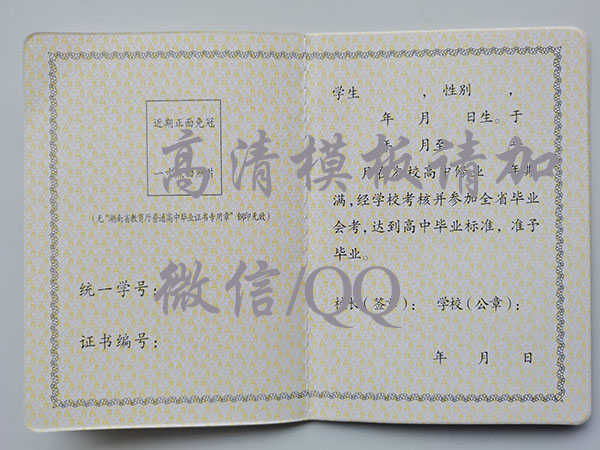 近期正面免冠
一
片
(无“湖南省教育厅普通高中毕业证书专用章”钢印无效)
统一学号:
证书编号:
学生 , 性别 ,
年 月 日生。于
年 月至 年
月在 校高中修业 年期
满, 经学校考核并参加全省毕业
会考, 达到高中毕业标准, 准予
毕业。
校长(签章): 学校(公章):
年 月 日
高清模板请加
微信/QQ